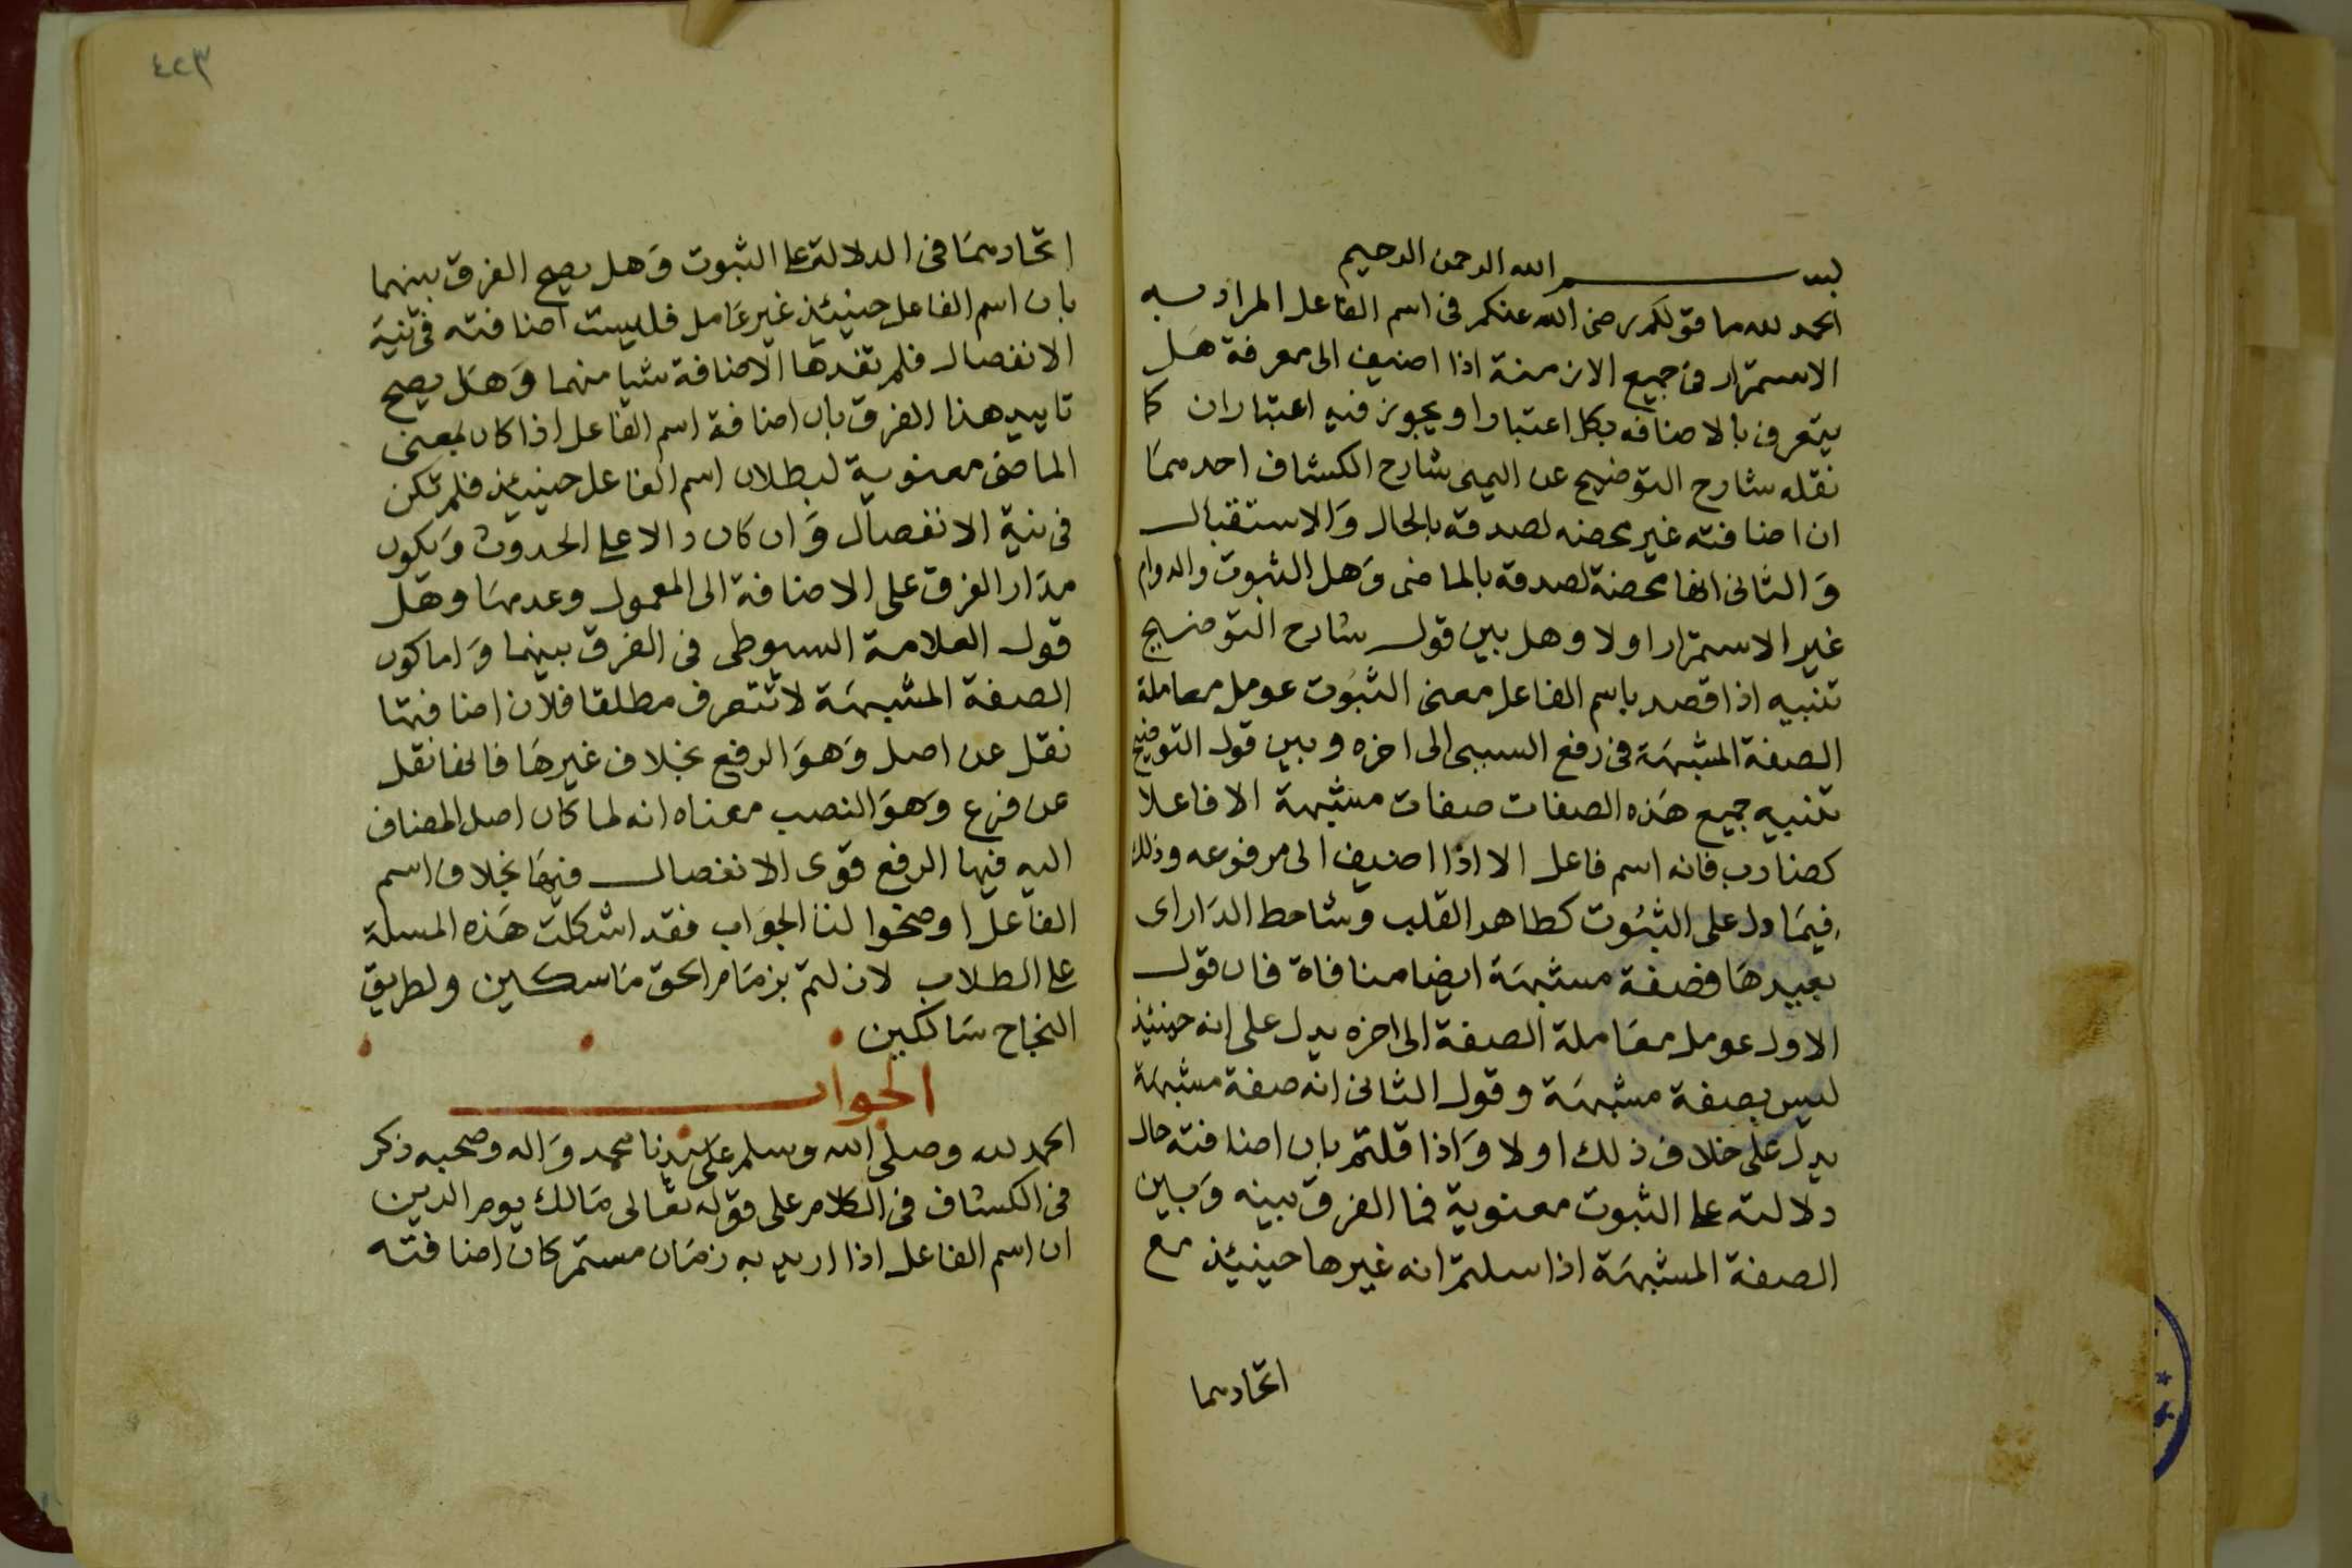 بسم الله الرحمن الرحيم
الحمد لله ما قولكم رضى الله عنكم فى اسم الفاعل المراد به
الاستمرار فى جميع الازمنة اذا اضيف الى معرفة هل
يتعرف بالاضافه بكل اعتبار او يجوز فيه اعتباران كما
نقله شارح التوضيح عن اليمنى شارح الكشاف احدهما
ان اضافته غير محضه لصدقه بالحال والاستقبال
والثانى انها محضة لصدقه بالماضى وهل الثبوت والدوام
غير الاستمرار اولا وهل بين قول شارح التوضيح
تنبيه اذا قصد باسم الفاعل معنى الثبوت عومل معاملة
الصفة المشبهة فى رفع السببى الى اخره وبين قول التوضيح
تنبيه جميع هذه الصفات صفات مشبهة الا فاعلا
كضارب فانه اسم فاعل الا اذا اضيف الى مرفوعه وذلك
فيما دل على الثبوت كطاهر القلب وشاحط الدار اى
بعيدها فصفة مشبهة ايضا منافاة فان قول
الاول عومل معاملة الصفة الى اخره يدل على انه حينئذ
ليس بصفة مشبهة وقول الثانى انه صفة مشبهة
يدل على خلاف ذلك اولا واذا قلتم بان اضافته حال
دلالته على الثبوت معنوية فما الفرق بينه وبين
الصفة المشبهة اذا سلمتم انه غيرها حينئذ مع
اتحادهما
٤٢٣
اتحادهما فى الدلالة على الثبوت وهل يصح الفرق بينهما
بان اسم الفاعل حينئذ غير عامل فليست اضافته فى نية
الانفصال فلم تفدها الاضافة شيا منهما وهل يصح
تاييد هذا الفرق بان اضافة اسم الفاعل اذا كان بمعنى
الماضى معنوية لبطلان اسم الفاعل حينئذ فلم تكن
فى نية الانفصال وان كان دالا على الحدوث ويكون
مدار الفرق على الاضافة الى المعمول وعدمها وهل
قول العلامة السيوطى فى الفرق بينهما واما كون
الصفة المشبهة لا تتعرف مطلقا فلان اضافتها
نقل عن اصل وهو الرفع بخلاف غيرها فانها نقل
عن فرع وهو النصب معناه انه لما كان اصل المضاف
اليه فيها الرفع قوى الانفصال فيها بخلاف اسم
الفاعل اوضحوا لنا الجواب فقد اشكلت هذه المسلة
على الطلاب لا زلتم بزمام الحق ماسكين ولطريق
النجاح سالكين
الجواب
الحمد لله وصلى الله وسلم على سيدنا محمد واله وصحبه ذكر
فى الكشاف فى الكلام على قوله تعالى مالك يوم الدين
ان اسم الفاعل اذا اريد به زمان مستمر كان اضافته